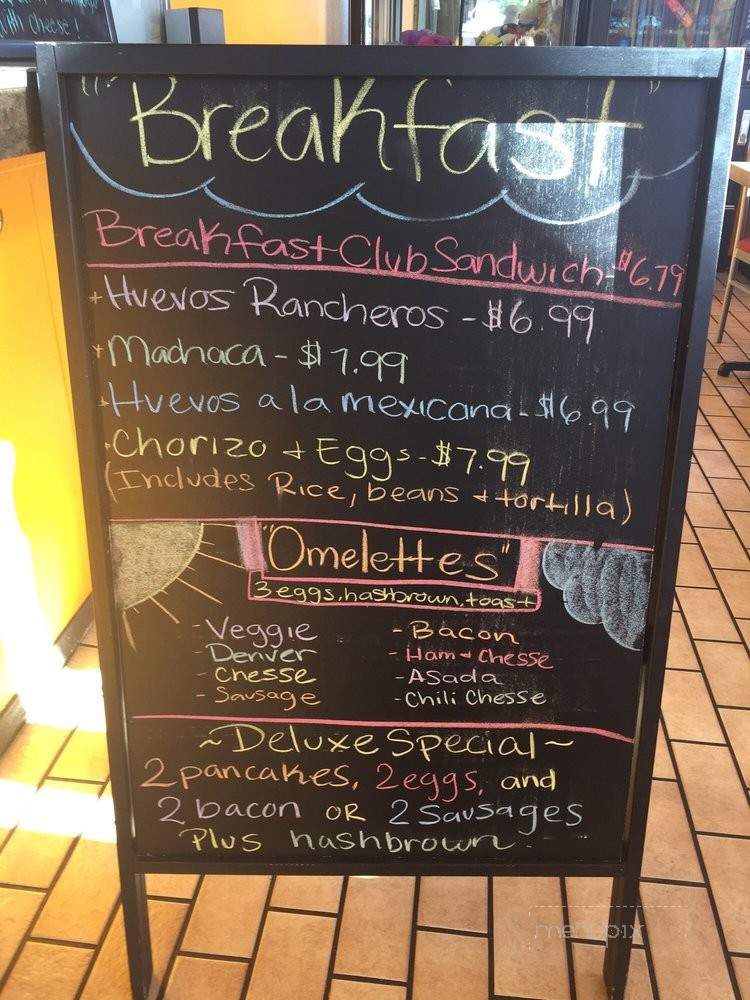 with cheese!
"Breakfast"
Breakfast Club Sandwich - $6.79
+Huevos Rancheros - $6.99
+Machaca - $7.99
+Huevos a la mexicana - $6.99
+Chorizo + Eggs - $7.99
(Includes Rice, beans + tortilla)
"Omelettes"
3 eggs, hashbrown, toast
- Veggie
- Denver
- Chesse
- Sausage
- Bacon
- Ham + Chesse
- Asada
- Chili Chesse
~Deluxe Special~
2 pancakes, 2 eggs, and
2 bacon OR 2 Sausages
Plus hashbrown.
menupix